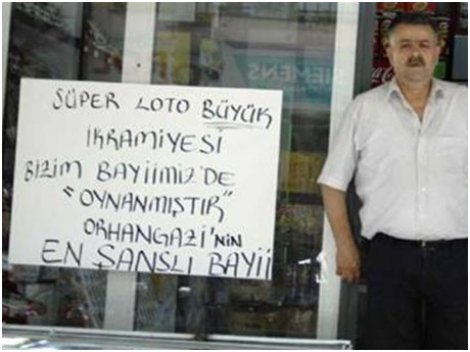 SÜPER LOTO BÜYÜK
İKRAMİYESİ
BİZİM BAYİİMİZ'DE
"OYNANMIŞTIR"
ORHANGAZİ'NİN
EN ŞANSLI BAYİİ
SIEMENS